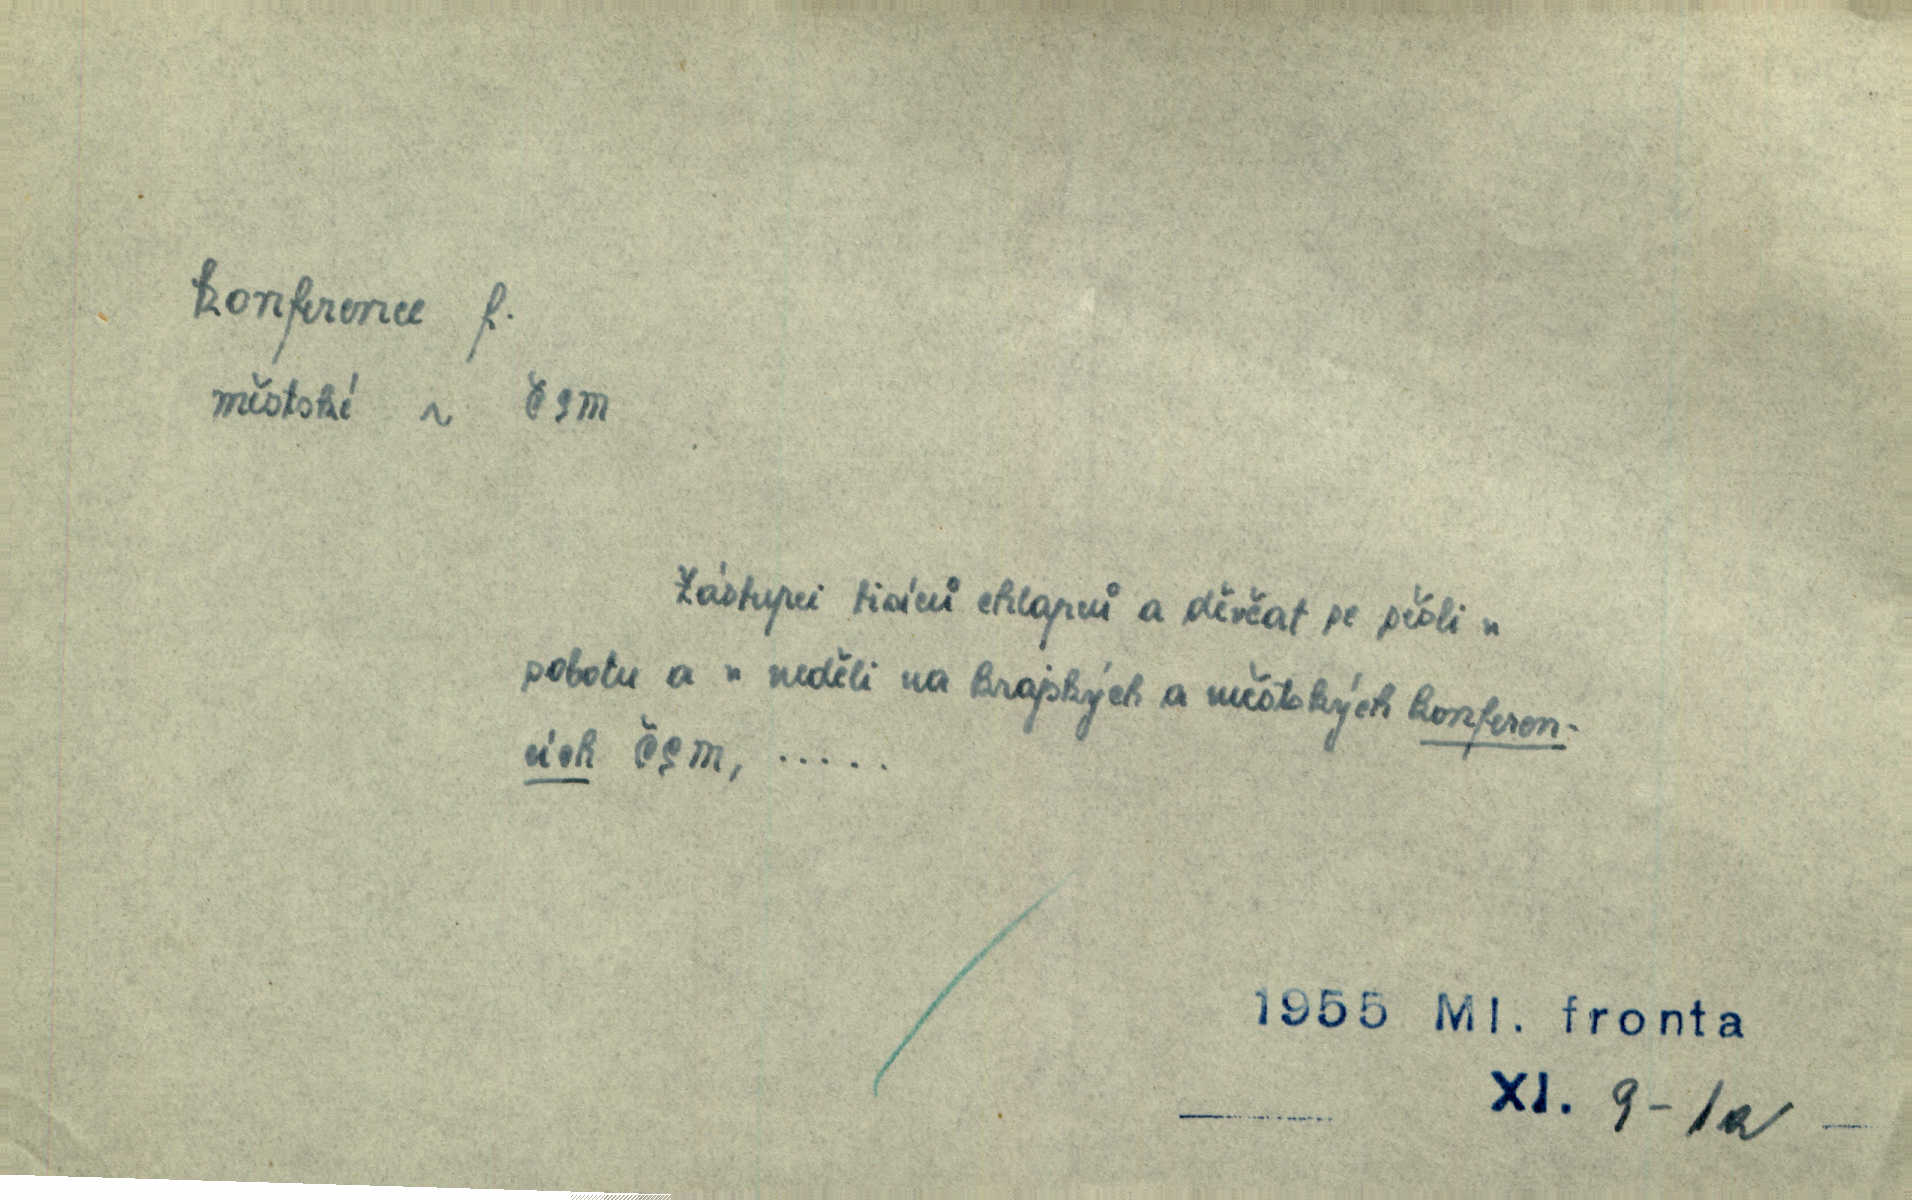 konference f.
městské ~ ČSM
Zástupci tisíců chlapců a děvčat se sešli v
sobotu a v neděli na krajských a městských konferen-
cích ČSM, .....
1955 Ml. fronta
XI. 9 - 1a